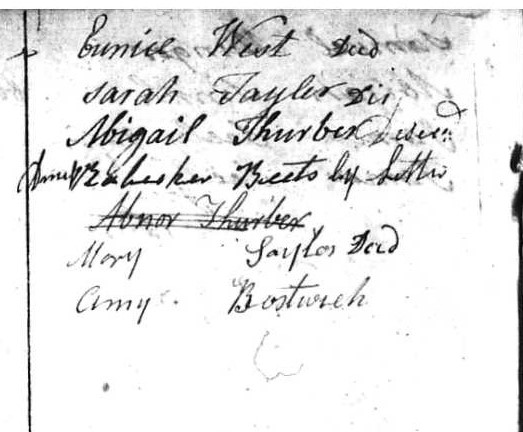 Eunice West Ded
Sarah Tayler Dis
Abigail Thurber
Beets by letter
Abnor Thurber
Mary Saylor Ded
Amy Bostwich